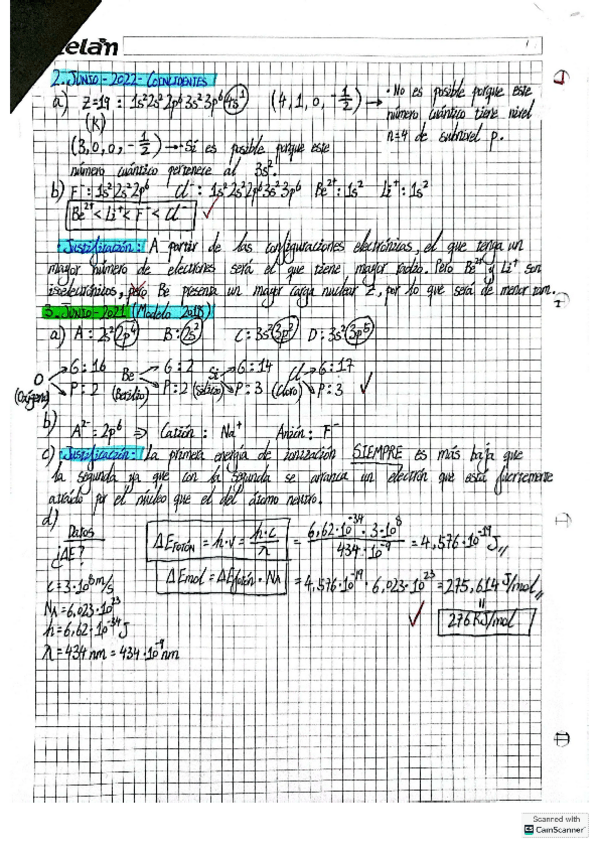 elan
2. JUNIO-2022-COINCIDENTES
a) Z=19 : 1s²2s²2p⁶3s²3p⁶4s¹ (4,1,0,-1/2) → · No es posible porque este
(K) número cuántico tiene nivel
n=4 de subnivel p.
(3,0,0,-1/2) → Sí es posible porque este
número cuántico pertenece al 3s².
b) F⁻: 1s²2s²2p⁶ Cl⁻: 1s²2s²2p⁶3s²3p⁶ Be²⁺: 1s² Li⁺: 1s²
Be²⁺ < Li⁺ < F⁻ < Cl⁻ ✓
· Justificación: A partir de las configuraciones electrónicas, el que tenga un
mayor número de electrones será el que tiene mayor radio. Pero Be²⁺ y Li⁺ son
isoelectrónicos, pero Be presenta un mayor carga nuclear Z, por lo que será de menor tam.
3. JUNIO-2021 (Modelo 2018)
a) A: 2s²2p⁴ B: 2s² C: 3s²3p² D: 3s²3p⁵
O G: 16 Be G: 2 Si G: 14 Cl G: 17
(Oxígeno) P: 2 (Berilio) P: 2 (Silicio) P: 3 (Cloro) P: 3 ✓
b) A²⁻ = 2p⁶ ⇒ Catión: Na⁺ Anión: F⁻
c) · Justificación: La primera energía de ionización SIEMPRE es más baja que
la segunda ya que con la segunda se arranca un electrón que está fuertemente
atraído por el núcleo que el del átomo neutro.
d)
Datos
¿ΔE?
ΔE fotón = h·ν = h·c/λ = 6,62·10⁻³⁴ · 3·10⁸ / 434·10⁻⁹ = 4,576·10⁻¹⁹ J
ΔEmol = ΔEfotón · NA = 4,576·10⁻¹⁹ · 6,023·10²³ = 275,614 J/mol
=
276 KJ/mol ✓
c = 3·10⁸ m/s
NA = 6,023·10²³
h = 6,62·10⁻³⁴ J
λ = 434 nm = 434·10⁻⁹ nm
Scanned with
CamScanner